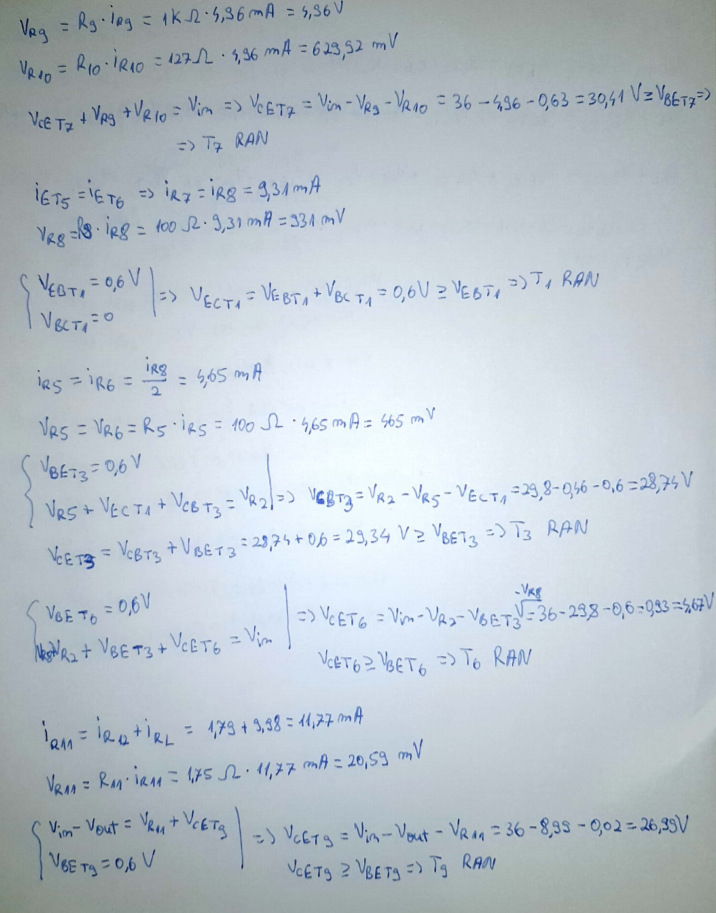 VR9 = R9 · iR9 = 1KΩ · 4,96 mA = 4,96V
VR10 = R10 · iR10 = 127Ω · 4,96 mA = 629,92 mV
VCET7 + VR9 + VR10 = Vin => VCET7 = Vin - VR9 - VR10 = 36 - 4,96 - 0,63 = 30,41 V ≥ VBET7 =>
=> T7 RAN
iET5 = iET6 => iR7 = iR8 = 9,31 mA
VR8 = R8 · iR8 = 100 Ω · 9,31 mA = 931 mV
{ VEBT1 = 0,6 V
VBCT1 = 0 | => VECT1 = VEBT1 + VBCT1 = 0,6V ≥ VEBT1 => T1 RAN
iR5 = iR6 = iR8/2 = 4,65 mA
VR5 = VR6 = R5 · iR5 = 100 Ω · 4,65 mA = 465 mV
{ VBET3 = 0,6 V
VR5 + VECT1 + VCBT3 = VR2 | => VCBT3 = VR2 - VR5 - VECT1 = 29,8 - 0,46 - 0,6 = 28,74 V
VCET3 = VCBT3 + VBET3 = 28,74 + 0,6 = 29,34 V ≥ VBET3 => T3 RAN
{ VBET6 = 0,6V | => VCET6 = Vin - VR2 - VBET3 - VR8 = 36 - 29,8 - 0,6 - 0,93 = 4,67V
VR8 + VR2 + VBET3 + VCET6 = Vin
VCET6 ≥ VBET6 => T6 RAN
iR11 = iR12 + iRL = 1,79 + 9,98 = 11,77 mA
VR11 = R11 · iR11 = 1,75 Ω · 11,77 mA = 20,59 mV
{ Vin - Vout = VR11 + VCET9 | => VCET9 = Vin - Vout - VR11 = 36 - 8,99 - 0,02 = 26,99V
VBET9 = 0,6 V
VCET9 ≥ VBET9 => T9 RAN